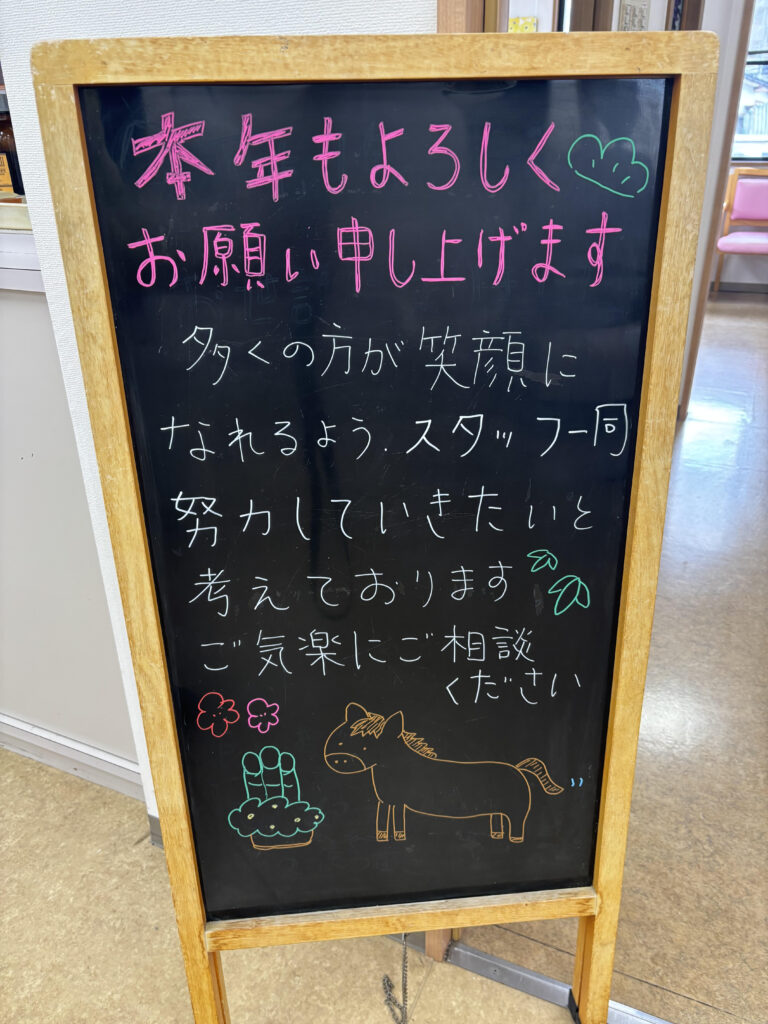 本年もよろしく
お願い申し上げます
多くの方が笑顔に
なれるよう.スタッフ一同
努力していきたいと
考えております
ご気楽にご相談
ください